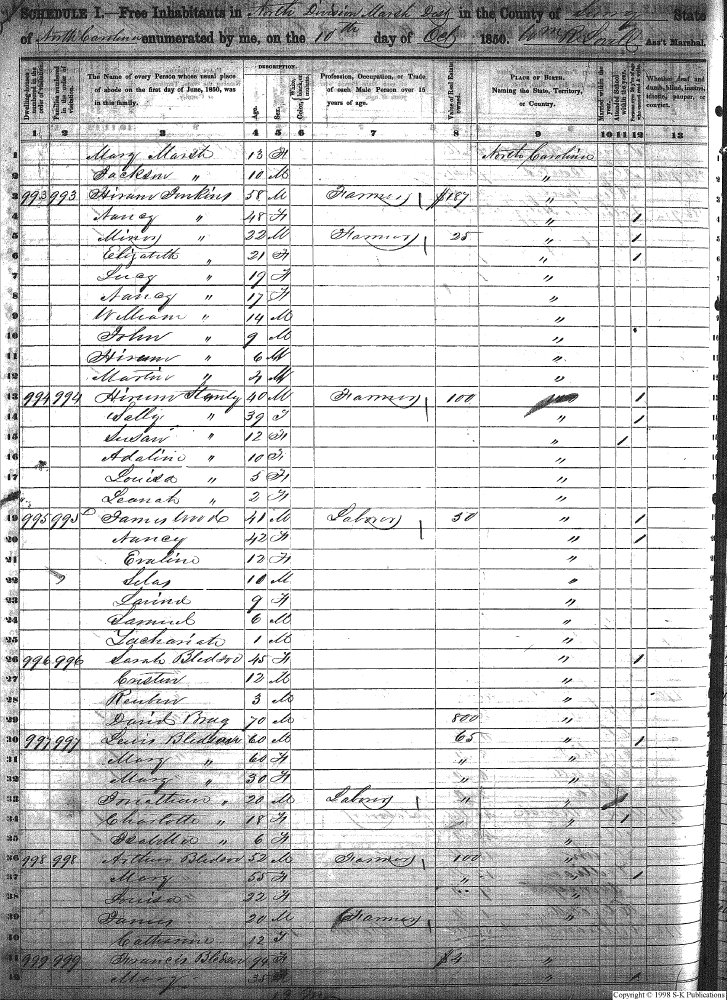 SCHEDULE I.—Free Inhabitants in North Division Marsh Dist in the County of State
of North Carolina enumerated by me, on the 10th day of Oct 1850. Wm Ass't Marshal.
DESCRIPTION.
The Name of every Person whose usual place of abode on the first day of June, 1850, was in this family.
Age. Sex. Profession, Occupation, or Trade of each Male Person over 15 years of age.
Value of Real Estate owned. PLACE OF BIRTH. Naming the State, Territory, or Country.
Whether deaf and dumb, blind, insane, idiotic, pauper, or convict.
1 2 3 4 5 6 7 8 9 10 11 12 13
1 Mary Marsh 13 F North Carolina
2 Jackson " 10 M "
3 993 993 Hiram Jenkins 58 M Farmer $187 "
4 Nancy " 48 F " 1
5 " 22 M Farmer 25 " 1
6 Elizabeth " 21 F " 1
7 Lucy " 19 F "
8 Nancy " 17 F "
9 William " 14 M "
10 John " 9 M "
11 Hiram " 6 M "
12 Martin " 4 M "
13 994 994 Hiram Stanly 40 M Farmer 100 1
14 Sally " 39 F " 1
15 Susan " 12 F " 1
16 Adaline " 10 F "
17 Louisa " 5 F "
18 Leanah " 2 F "
19 995 995 James Wood 41 M Laborer 50 " 1
20 Nancy 42 F " 1
21 Evaline 12 F "
22 Silas 10 M "
23 9 F "
24 Samuel 6 M "
25 Zachariah 1 M "
26 996 996 Sarah Bledsoe 45 F " 1
27 12 M "
28 Reuben 3 M "
29 David Bray 70 M 800 "
30 997 997 Lewis Bledsoe 60 M 65 " 1
31 Mary " 60 F "
32 Mary " 30 F "
33 Jonathan " 20 M Laborer " "
34 Charlotte " 18 F " 1
35 Isabella " 6 F "
36 998 998 Arthur Bledsoe 52 M Farmer 100 "
37 Mary 55 F " " 1
38 Louisa 22 F "
39 James 20 M Farmer "
40 Catherine 12 F
41 999 999 Francis Bledsoe F $4 "
42 Mary 35 1
Copyright © 1998 S-K Publications